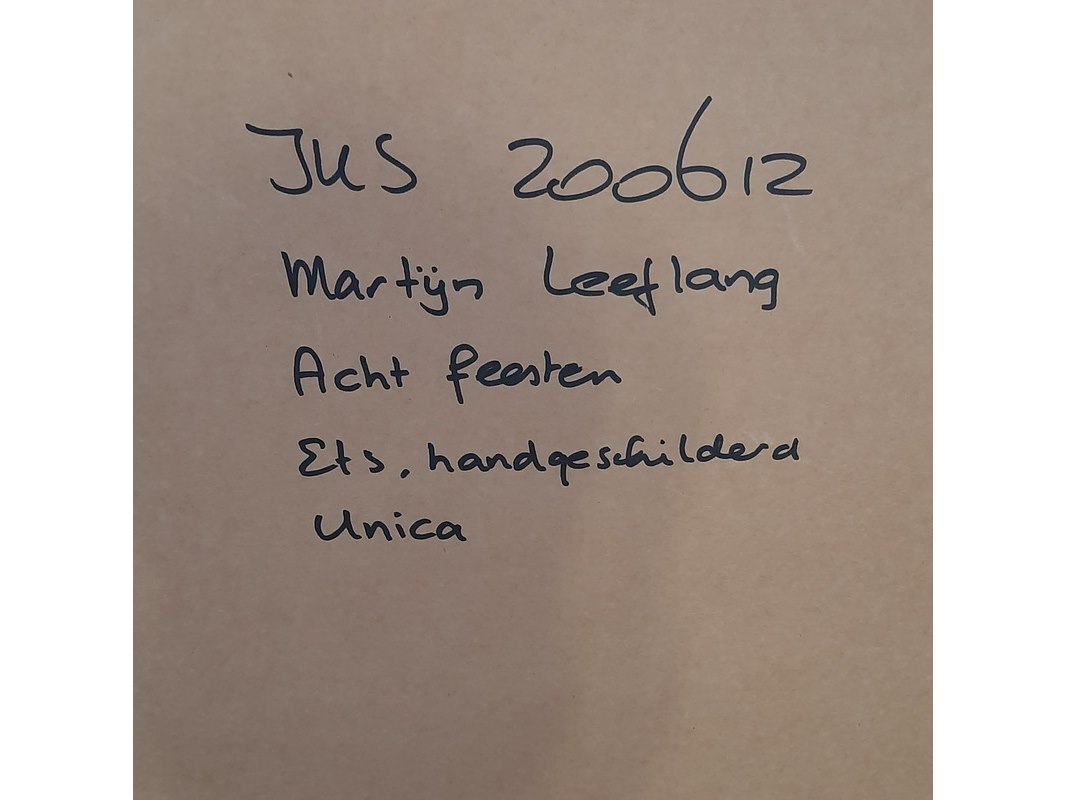 JUS 200612
Martijn Leeflang
Acht feesten
Ets, handgeschilderd
Unica